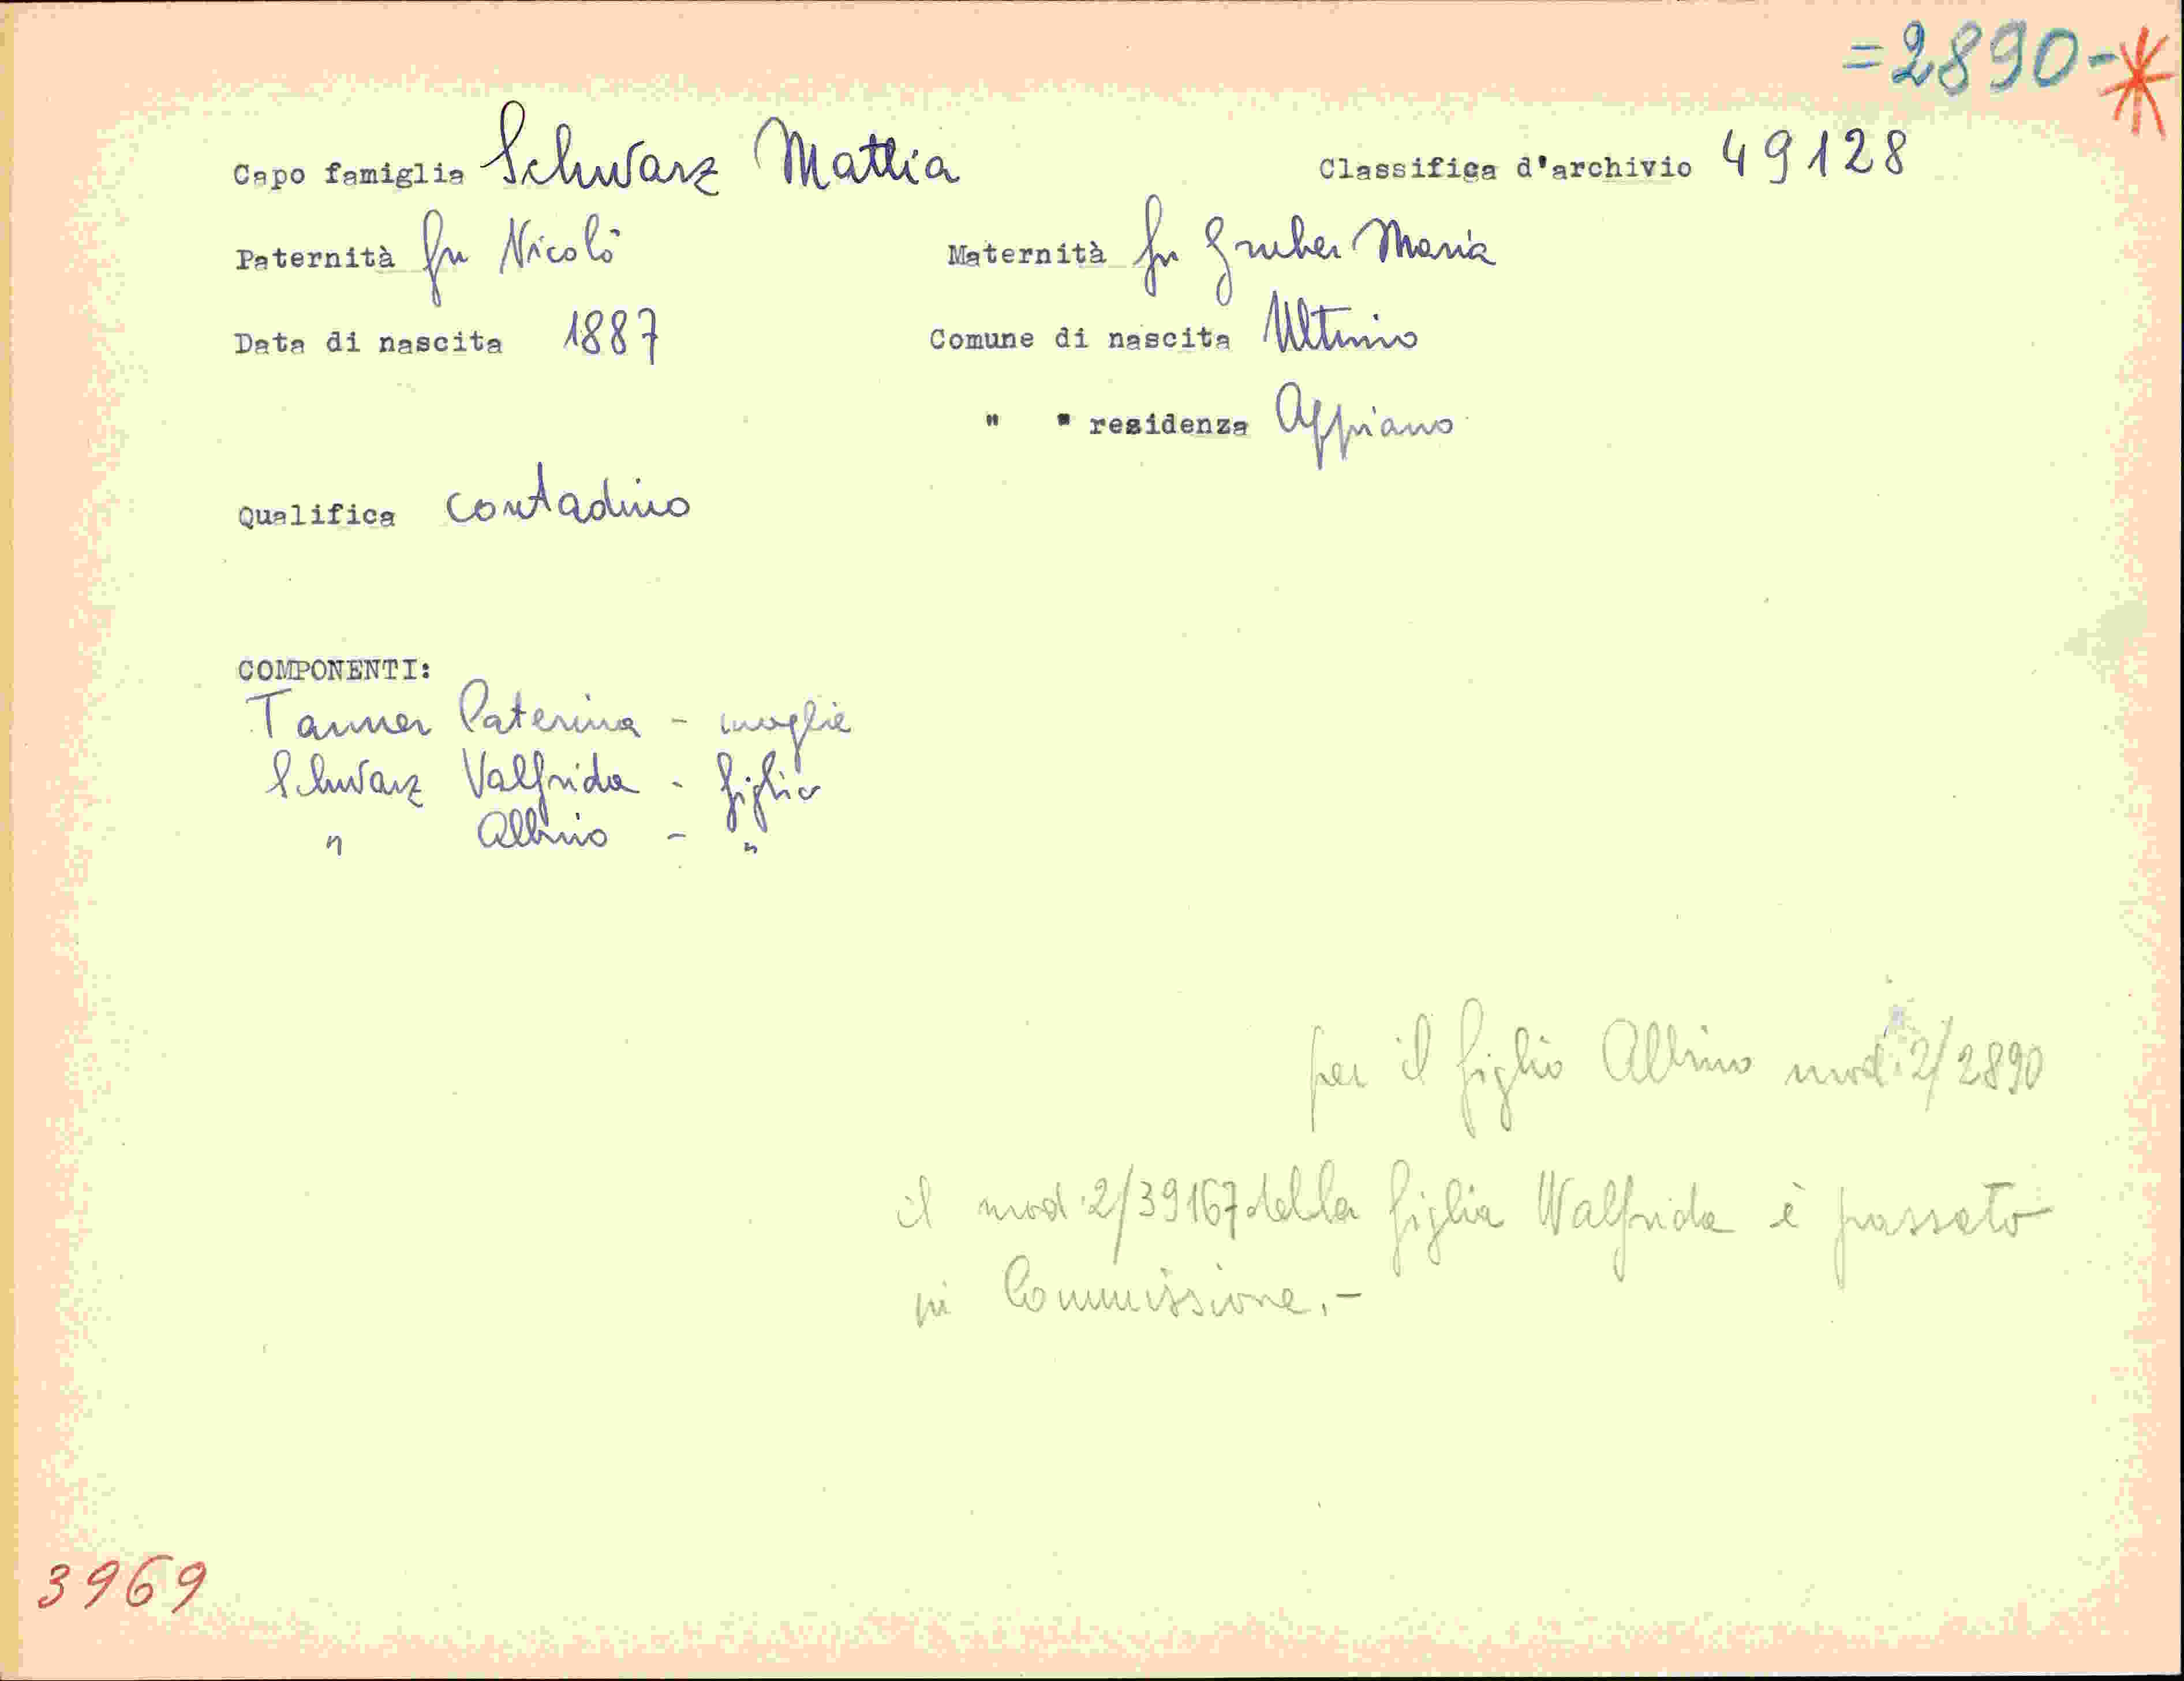 =2890-*
Capo famiglia Schwarz Mattia Classifica d'archivio 49128
Paternità fu Nicolò Maternità fu Gruber Maria
Data di nascita 1887 Comune di nascita Ultimo
" " residenza Appiano
Qualifica contadino
COMPONENTI:
Tanner Caterina - moglie
Schwarz Valfrida - figlia
" Albino - "
per il figlio Albino mod. 2/2890
il mod. 2/39167 della figlia Walfrida è passato
in Commissione.-
3969